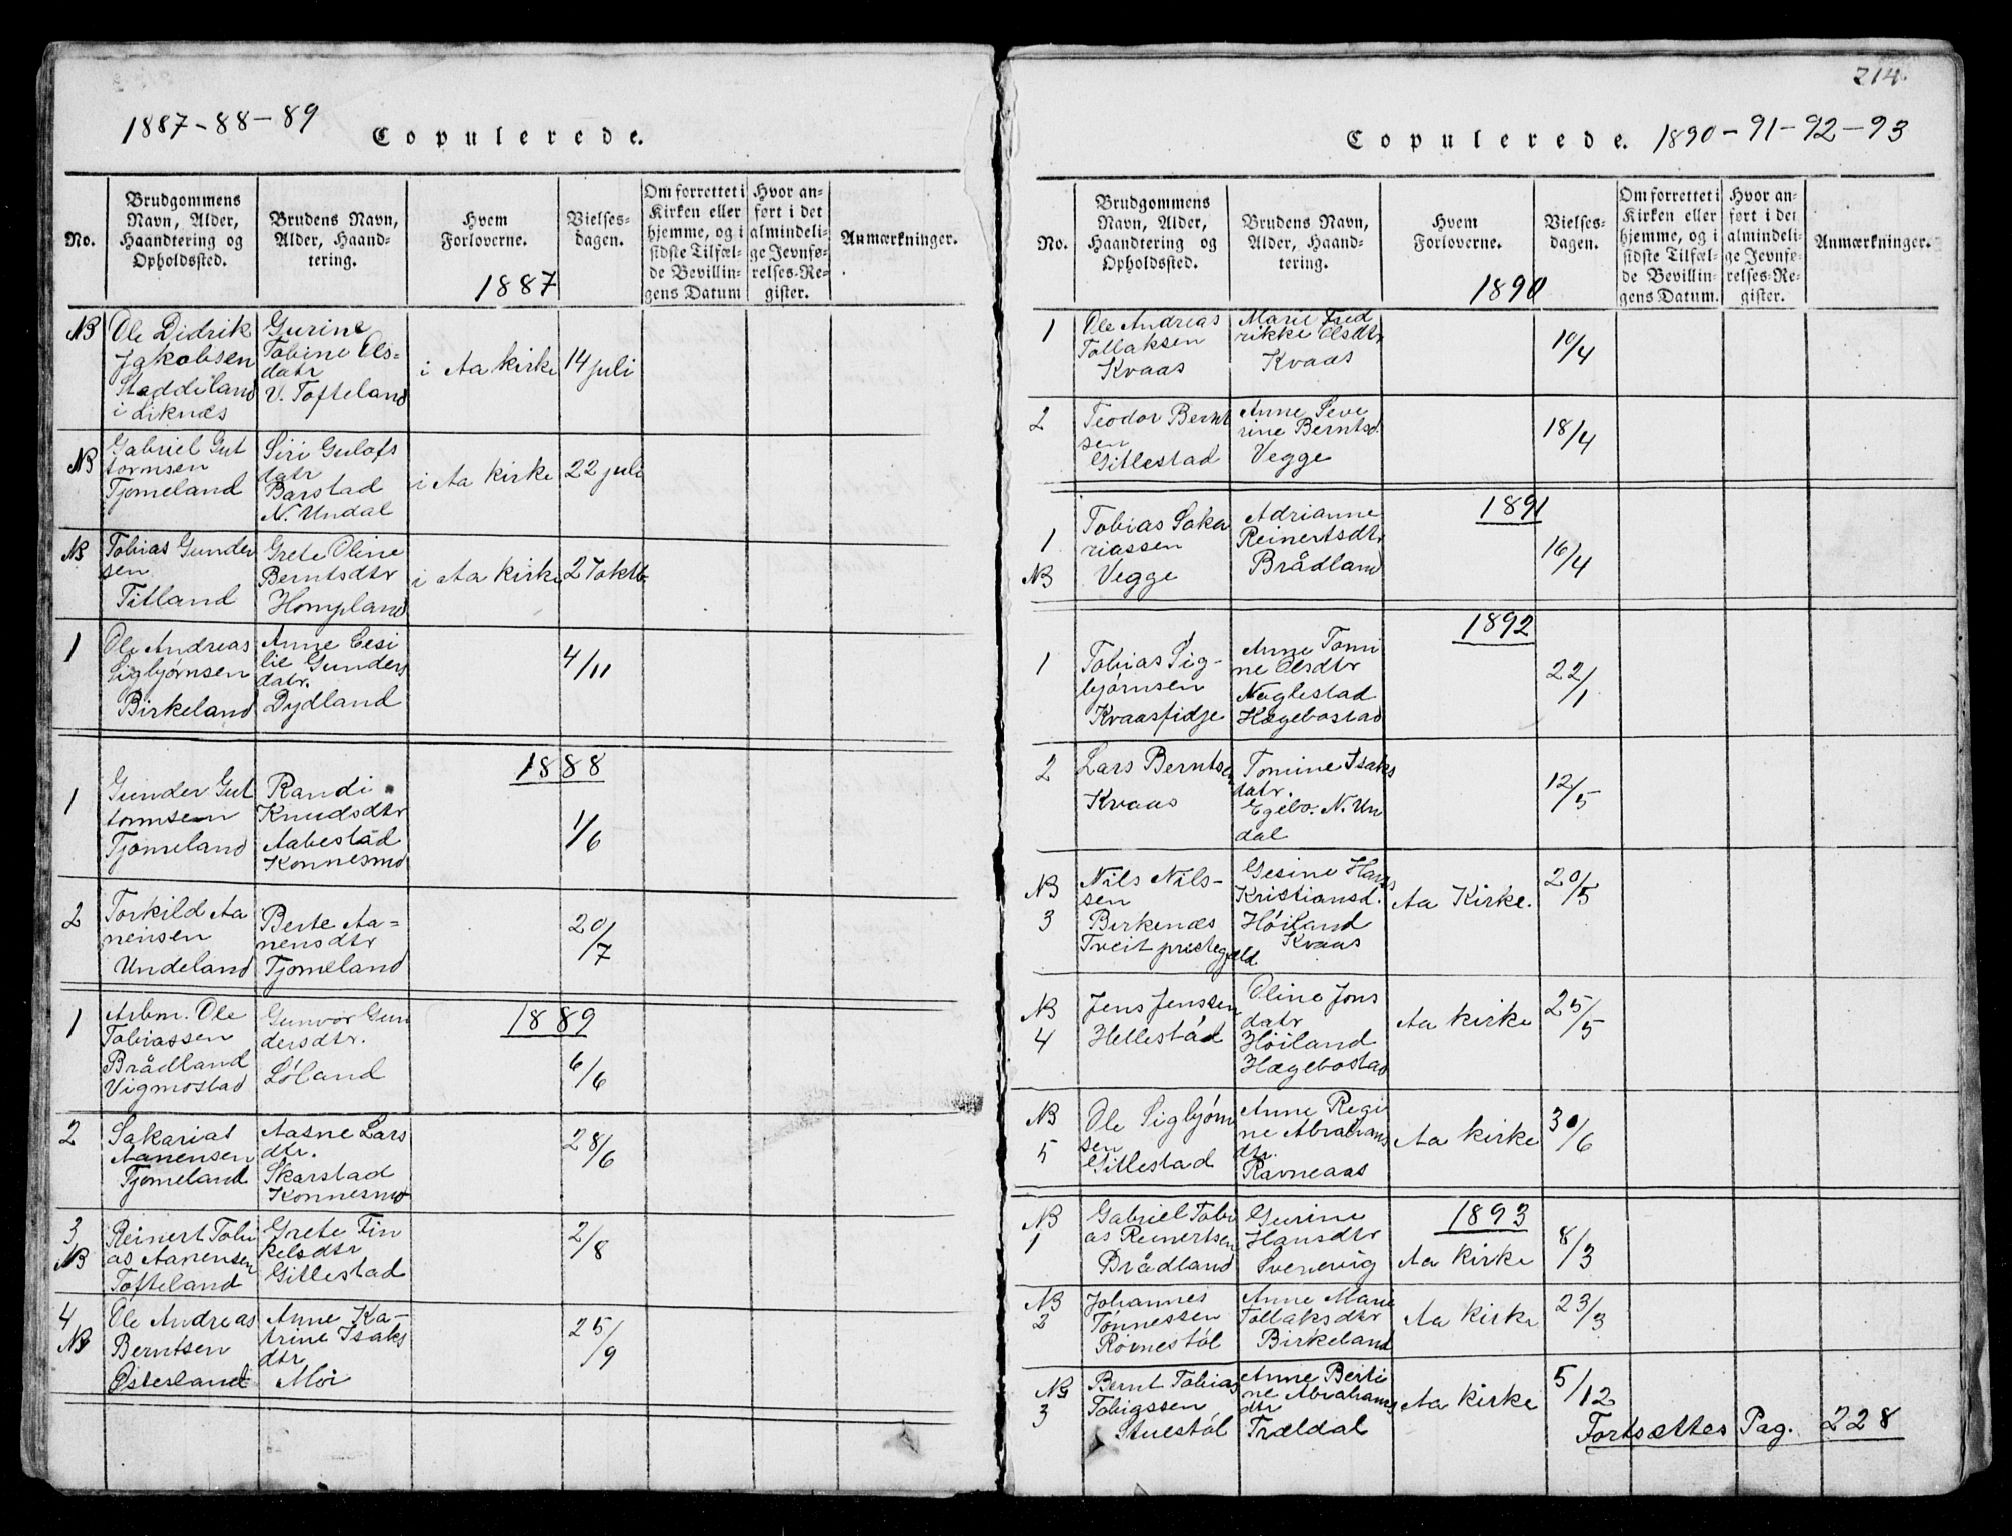 1887-88-89
Copulerede.
No.
Brudgommens
Navn, Alder,
Haandtering og
Opholdssted.
Brudens Navn,
Alder, Haand-
tering.
Hvem
Forloverne.
1887
Vielses-
dagen.
Om forrettet i
Kirken eller
hjemme, og i
sidste Tilfæl-
de Bevillin-
gens Datum
Hvor an-
ført i det
almindeli-
ge Jevnfø-
relses-Re-
gister.
Anmærkninger.
NB
Ole Didrik
Jakobsen
Staddeland
i Liknes
Gurine
Tobine Ols-
datr
V. Tofteland
i Aa kirke
14 juli
NB
Gabriel Gut
tormsen
Tjomeland
Siri Gulofs
datr
Barstad
N. Undal
i Aa kirke
22 juli
NB
Tobias Gunder
sen
Titland
Grete Oline
Berntsdtr
Hompland
i Aa kirke
27 oktb.
1
Ole Andreas
Sigbjørnsen
Birkeland
Anne Cesi
lie Gunders
datr.
Dydland
4/11
1888
1
Gunder Gut
tormsen
Tjomeland
Randi
Knudsdtr
Aabestad
Konnesmo
1/6
2
Torkild Aa
nensen
Undeland
Berte Aa-
nensdtr
Tjomeland
20/7
1889
1
Arbm. Ole
Tobiassen
Brådland
Vigmostad
Gunvor Gun
dersdtr.
Løland
6/6
2
Sakarias
Aanensen
Tjomeland
Aasne Lars
dtr.
Skarstad
Konnesmo
28/6
3
NB
Reinert Tobi
as Aanensen
Tofteland
Grete Fin
kelsdtr
Gitlestad
2/8
4
NB
Ole Andreas
Berntsen
Østerland
Anne Ka-
trine Isaks
dtr
Moi
25/9
214.
Copulerede. 1890-91-92-93
No.
Brudgommens
Navn, Alder,
Haandtering og
Opholdssted.
Brudens Navn,
Alder, Haand-
tering.
Hvem
Forloverne.
1890
Vielses-
dagen.
Om forrettet i
Kirken eller
hjemme, og i
sidste Tilfæl-
de Bevillin-
gens Datum.
Hvor an-
ført i det
almindeli-
ge Jevnfø-
relses-Re-
gister.
Anmærkninger.
1
Ole Andreas
Tollaksen
Kvaas
Marie Fred
rikke Olsdtr
Kvaas
10/4
2
Teodor Bernt
sen
Gitlestad
Anne Seve
rine Berntsd.
Vegge
18/4
1891
1
NB
Tobias Saka
riassen
Vegge
Adrianne
Reinertsdtr
Brådland
16/4
1892
1
Tobias Sig-
bjørnsen
Kvaasfidje
Anne Tomi
ne Olsdtr
Naglestad
Hægebostad
22/1
2
Lars Berntsen
Kvaas
Tomine Isaks
datr.
Egebo. N. Un
dal
12/5
NB
3
Nils Nils-
sen
Birkenæs
Tveit prestegjeld
Gesine Hans
Kristiansd.
Høiland
Kvaas
Aa Kirke.
20/5
NB
4
Jens Jenssen
Hellestad
Oline Jons
datr
Høiland
Hægebostad
Aa kirke
25/5
NB
5
Ole Sigbjørn
sen
Gitlestad
Anne Regi
ne Abrahams
dtr.
Ravneaas
Aa kirke
30/6
1893
NB
1
Gabriel Tobi
as Reinertsen
Brådland
Gurine
Hansdtr
Svenevig
Aa kirke
8/3
NB
2
Johannes
Tønnessen
Roinestøl
Anne Marie
Tollaksdtr
Birkeland
Aa kirke
23/3
NB
3
Bernt Tobias
Tobiassen
Stuestøl
Anne Berti
ne Abrahams
dtr
Trældal
Aa kirke
5/12
Fortsættes Pag. 228